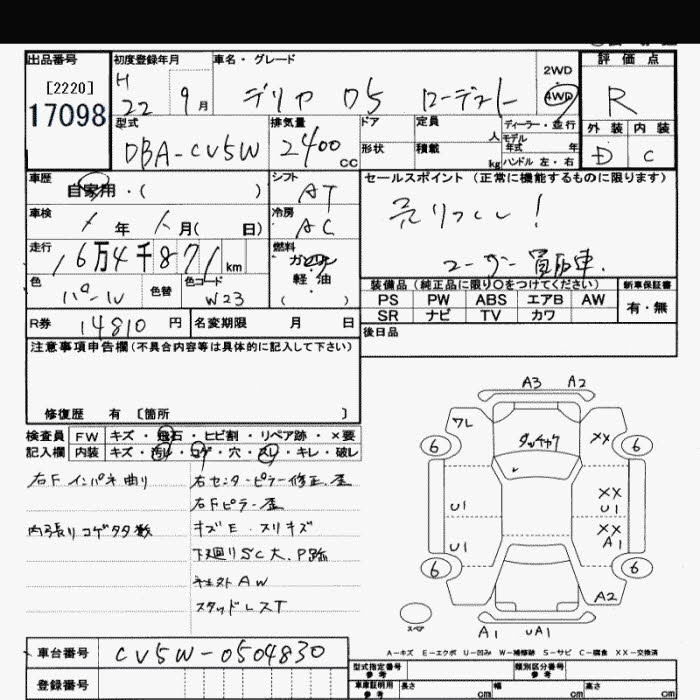 出品番号
[2220]
17098
初度登録年月
H
22 9月
車名・グレード
デリカ D5 ローデスト
2WD
4WD
評価点
R
外装 内装
D C
型式
DBA-CV5W
排気量
2400cc
ドア
形状
定員
人
積載
kg
ディーラー・並行
モデル
年式 年
ハンドル 左・右
車歴
自家用・( )
シフト
AT
セールスポイント (正常に機能するものに限ります)
売りつくし!
ユーザー買取車.
車検
年 月( 日)
冷房
AC
走行
16万4千871km
燃料
ガソリン
・
軽油
( )
色
パール
色替
色コード
W23
装備品 (純正品に限り〇をつけてください)
PS PW ABS エアB AW
SR ナビ TV カワ
新車保証書
有・無
R券
14810円
名変期限 月 日
後日品
注意事項申告欄(不具合内容等は具体的に記入して下さい)
修復歴 有 [箇所 ]
検査員
記入欄
FW キズ・飛石・ヒビ割・リペア跡・×要
内装 キズ・汚れ・コゲ・穴・スレ・キレ・破レ
右Fインパネ曲り
内張りコゲ
右センターピラー修正.歪
右Fピラー歪
キズE.スリキズ
下廻りSC大.P跡
AW
スタッドレスT
A3 A2
ワレ
XX
6 6
U1
U1
XX
U1
XX
A1
6 6
A2
スペア
A1 UA1
A-キズ E-エクボ U-凹み W-補修跡 S-サビ C-腐食 XX-交換済
車台番号
CV5W-0504830
登録番号
型式指定番号
参考
類別区分番号
参考
車庫証明用
参考
長さ cm
幅 cm
高さ cm